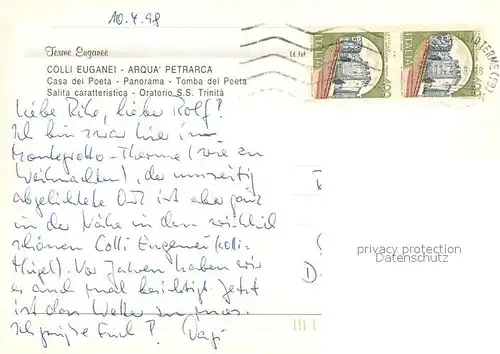 10.4.98
Terme Euganee
COLLI EUGANEI - ARQUA' PETRARCA
Casa del Poeta - Panorama - Tomba del Poeta
Salita caratteristica - Oratorio S.S. Trinità
ITALIA
ITALIA
Liebe Rike, lieber Rolf!
Ich bin zwar hier in
Montegrotto-Therme (wie zu
Weihnachten), der umseitig
abgelichtete Ort ist aber ganz
in der Nähe in den wirklich
schönen Colli Euganei (Colli=
Hügel). Vor Jahren haben wir
es auch mal besichtigt. Jetzt
ist das Wetter
Ich grüße Euch!
privacy protection
Datenschutz